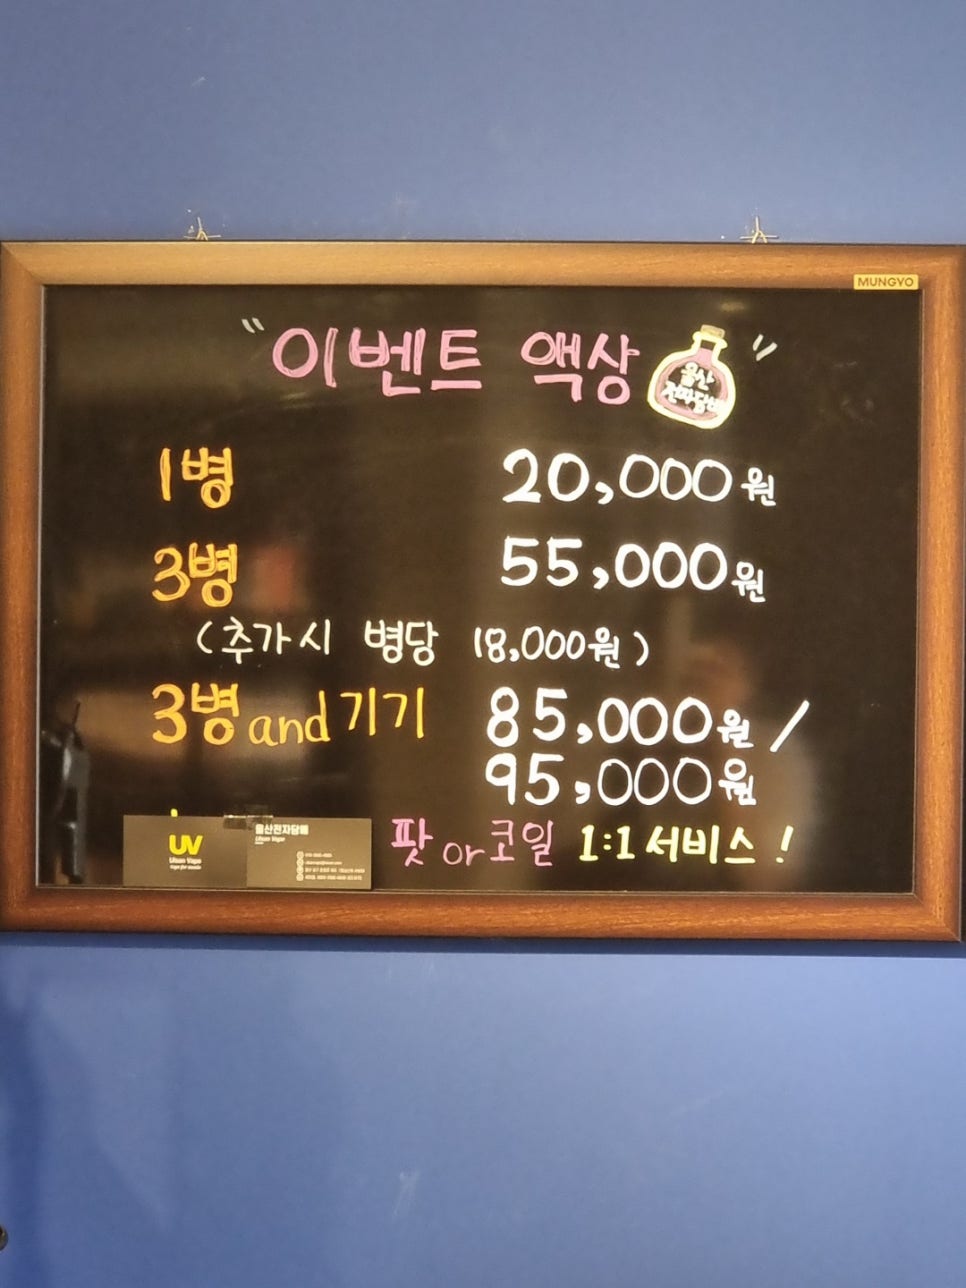 MUNGYO
"이벤트 액상"
울산
전자담배
1병 20,000원
3병 55,000원
(추가시 병당 18,000원)
3병 and 기기 85,000원 /
95,000원
팟 or 코일 1:1 서비스!
UV
Ulsan Vape
울산전자담배
Ulsan Vape